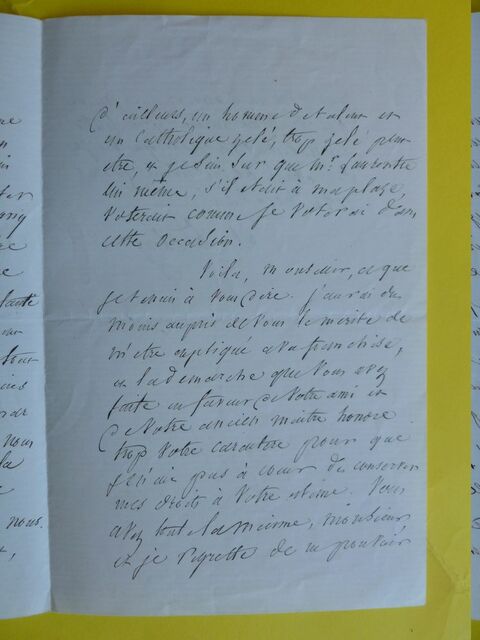 d'ailleurs, un homme de talent et
un Catholique zelé, trop zelé peut
etre, et je suis sur que Mr. Laurentie
lui même, s'il était à ma place,
voterait comme je voterai dans
cette occasion.
Voila, monsieur, ce que
je tenais à vous dire. j'aurai du
moins aupris de vous le mérite de
m'etre expliqué avec franchise,
et la demarche que vous avez
faite en faveur de votre ami et
de votre ancien maitre honore
trop votre caractere pour que
je n'aie pas à coeur de conserver
mes droits à votre estime. Vous
avez toute la mienne, monsieur,
et je regrette de ne pouvoir
nous
la
nous.